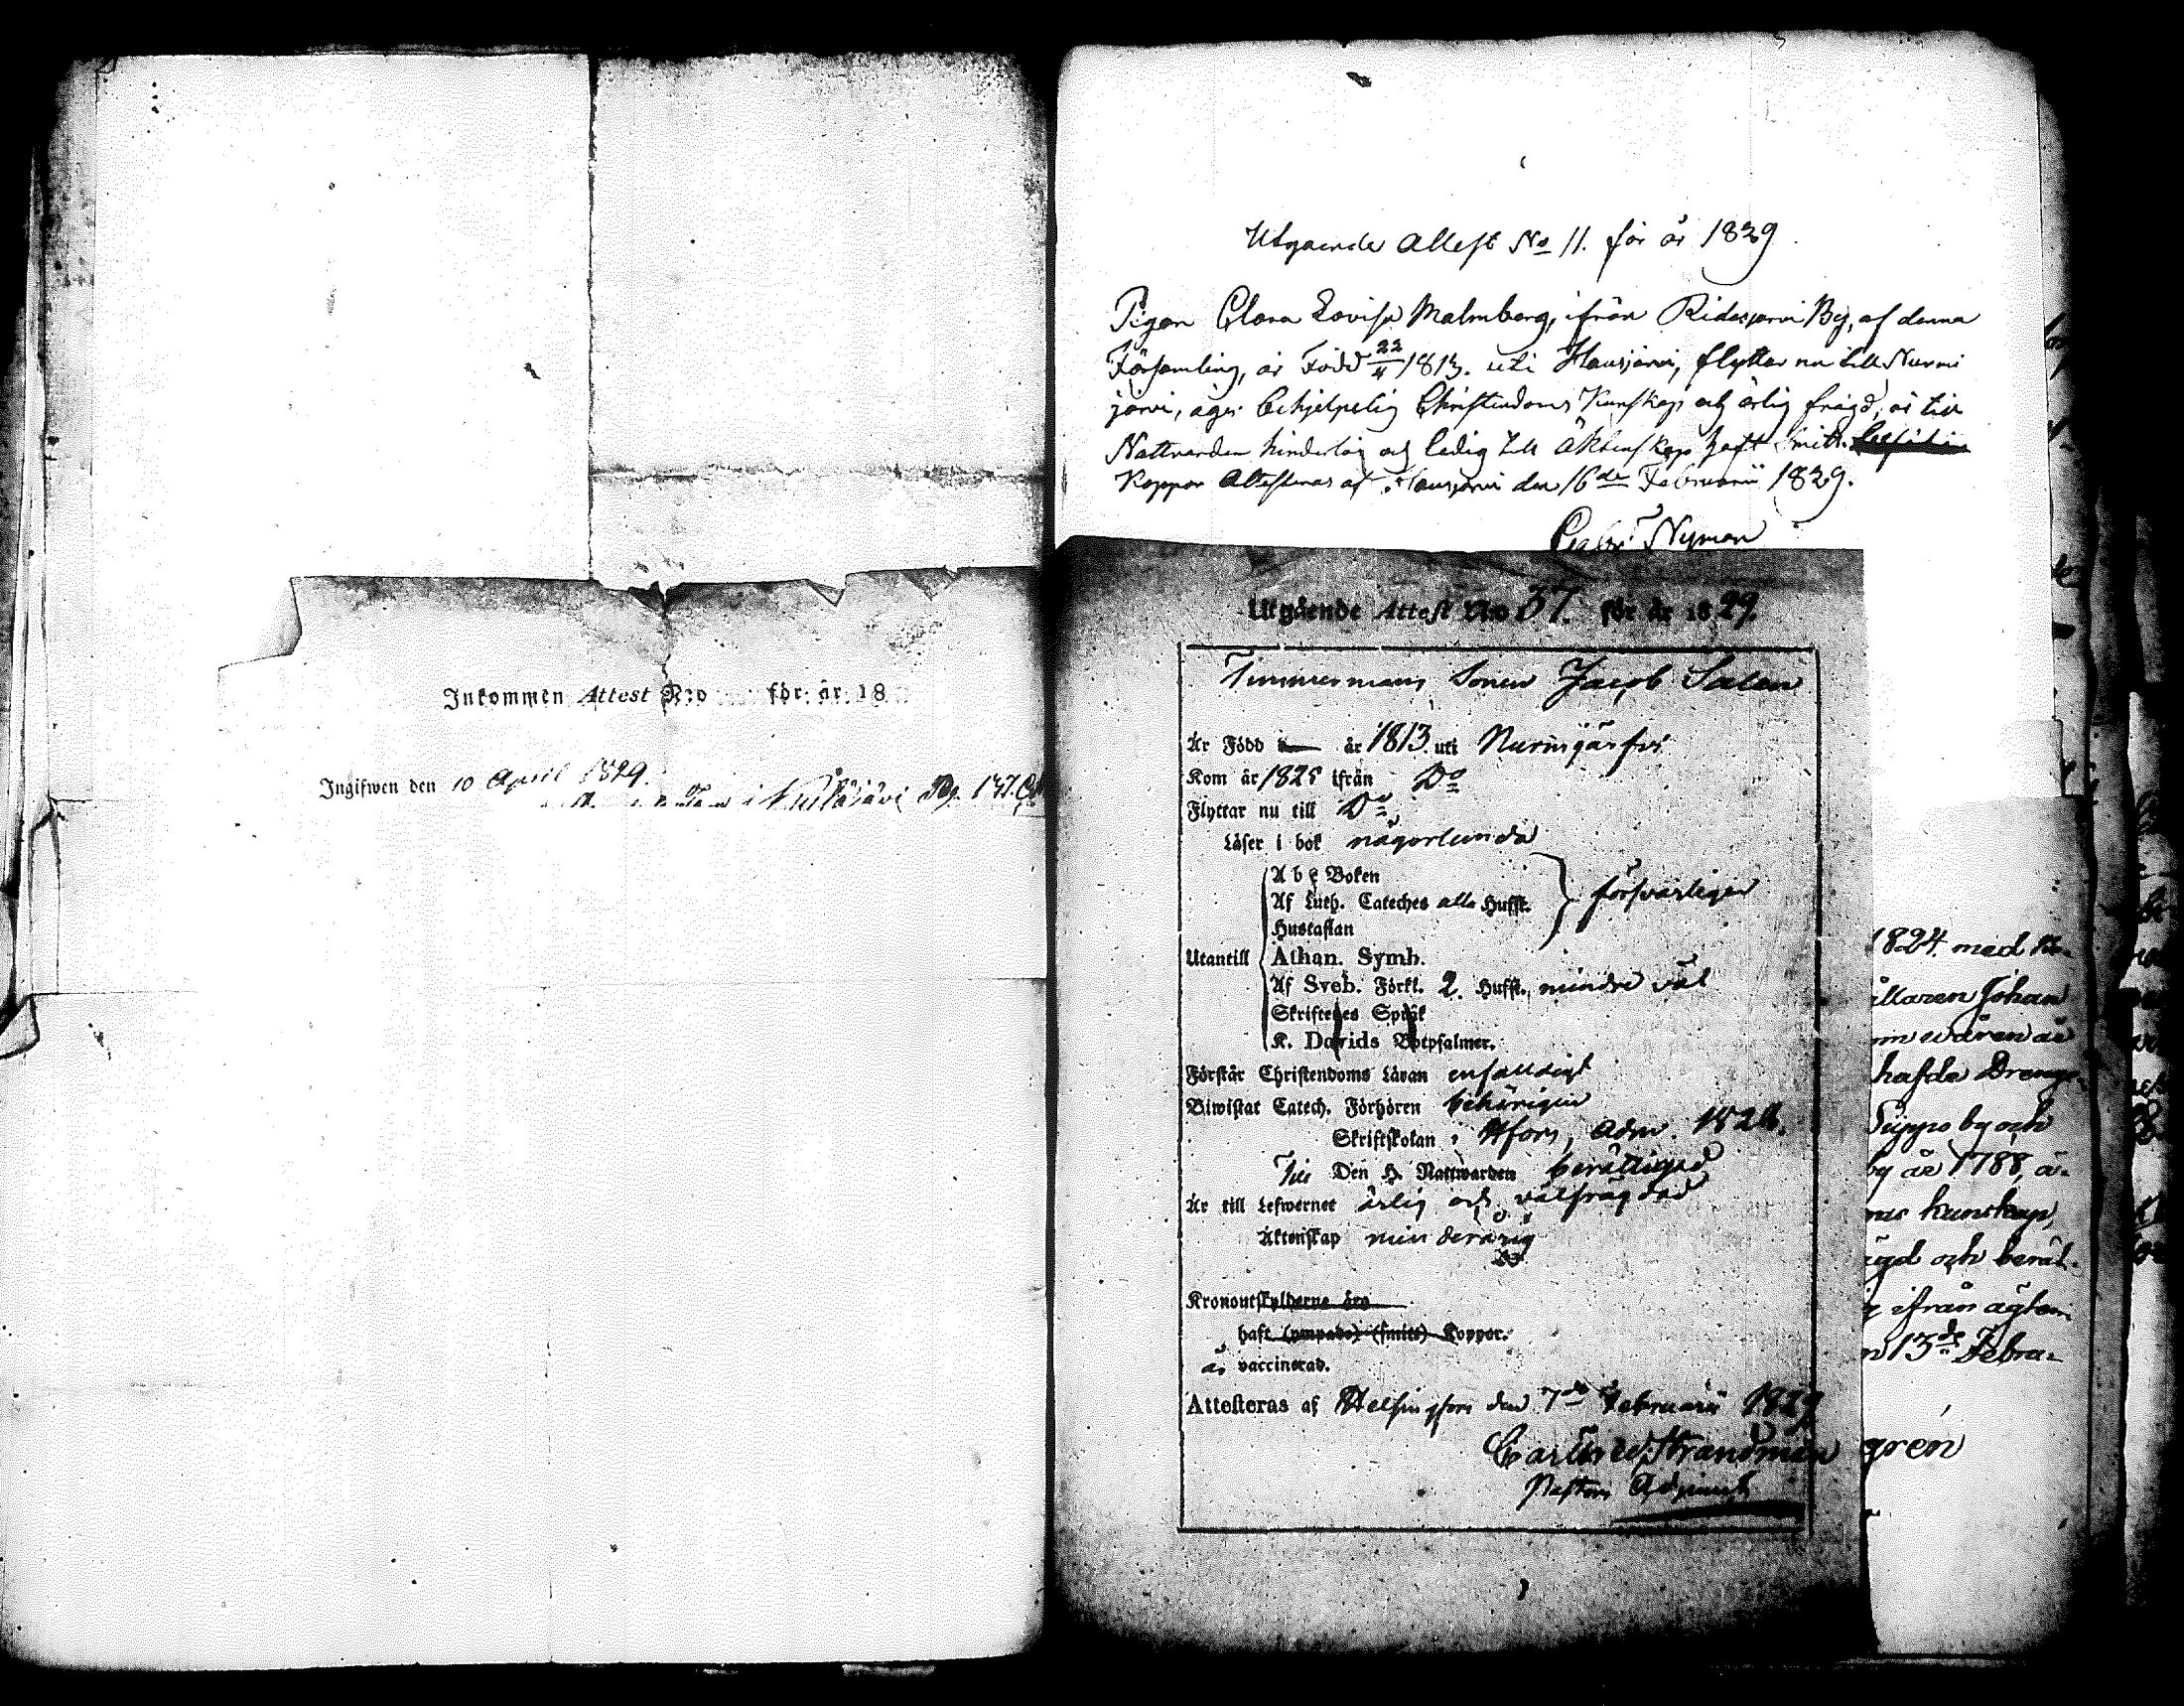 Inkommen Attest N:o för år 18
Ingifwen den 10 April 1829.
i Pag. 137.
Utgaende Attest No 11. för år 1829
Pigan Clara Lovisa Malmberg, ifrån Ridasjervi By, af denna
Församling, är Född 22/4 1813. uti Hausjärvi, flyttar nu till Nurmi
järvi, äger behjelpelig Christendoms Kunskap och ärlig frägd, är till
Nattvarden hinderlös och ledig till Äktenskap haft Smitt.
Koppor Attesteras af Hausjärvi den 16de Februarii 1829.
Nyman
Utgående Attest N:o 37. för år 1829.
Timmermans Sonen Jacob Salen
Är Född år 1813. uti Nurmijärfvi
Kom år 1828 ifrån Do
Flyttar nu till Do
Läser i bok någorlunda
A b c Boken
Af Luth. Cateches alla Hufst. försvarligen
Hustaflan
Utantill Athan. Symb.
Af Sveb. Förkl. 2. Hufst. mindre väl
Skriftenes Språk
K. Davids Botpsalmer.
Förstår Christendoms Läran enfaldigt
Biwistat Catech. Förhören behörigen
Skriftskolan i Hfors, Adm. 1828.
Till Den H. Nattwarden berättigad
Är till Lefwernet ärlig och välfrägdad
Äktenskap minderårig
Kronoutskylderne äro
haft (ympade) (smitt) Koppor.
är vaccinerad.
Attesteras af Helsingfors den 7de Februarii 1829
Strandman
Pastors Adjunct
1824. med
Johan
hafde Dreng
by och
by år 1788, ä-
kunskap,
och berät-
ifrån ägten
13de Febru-
gren